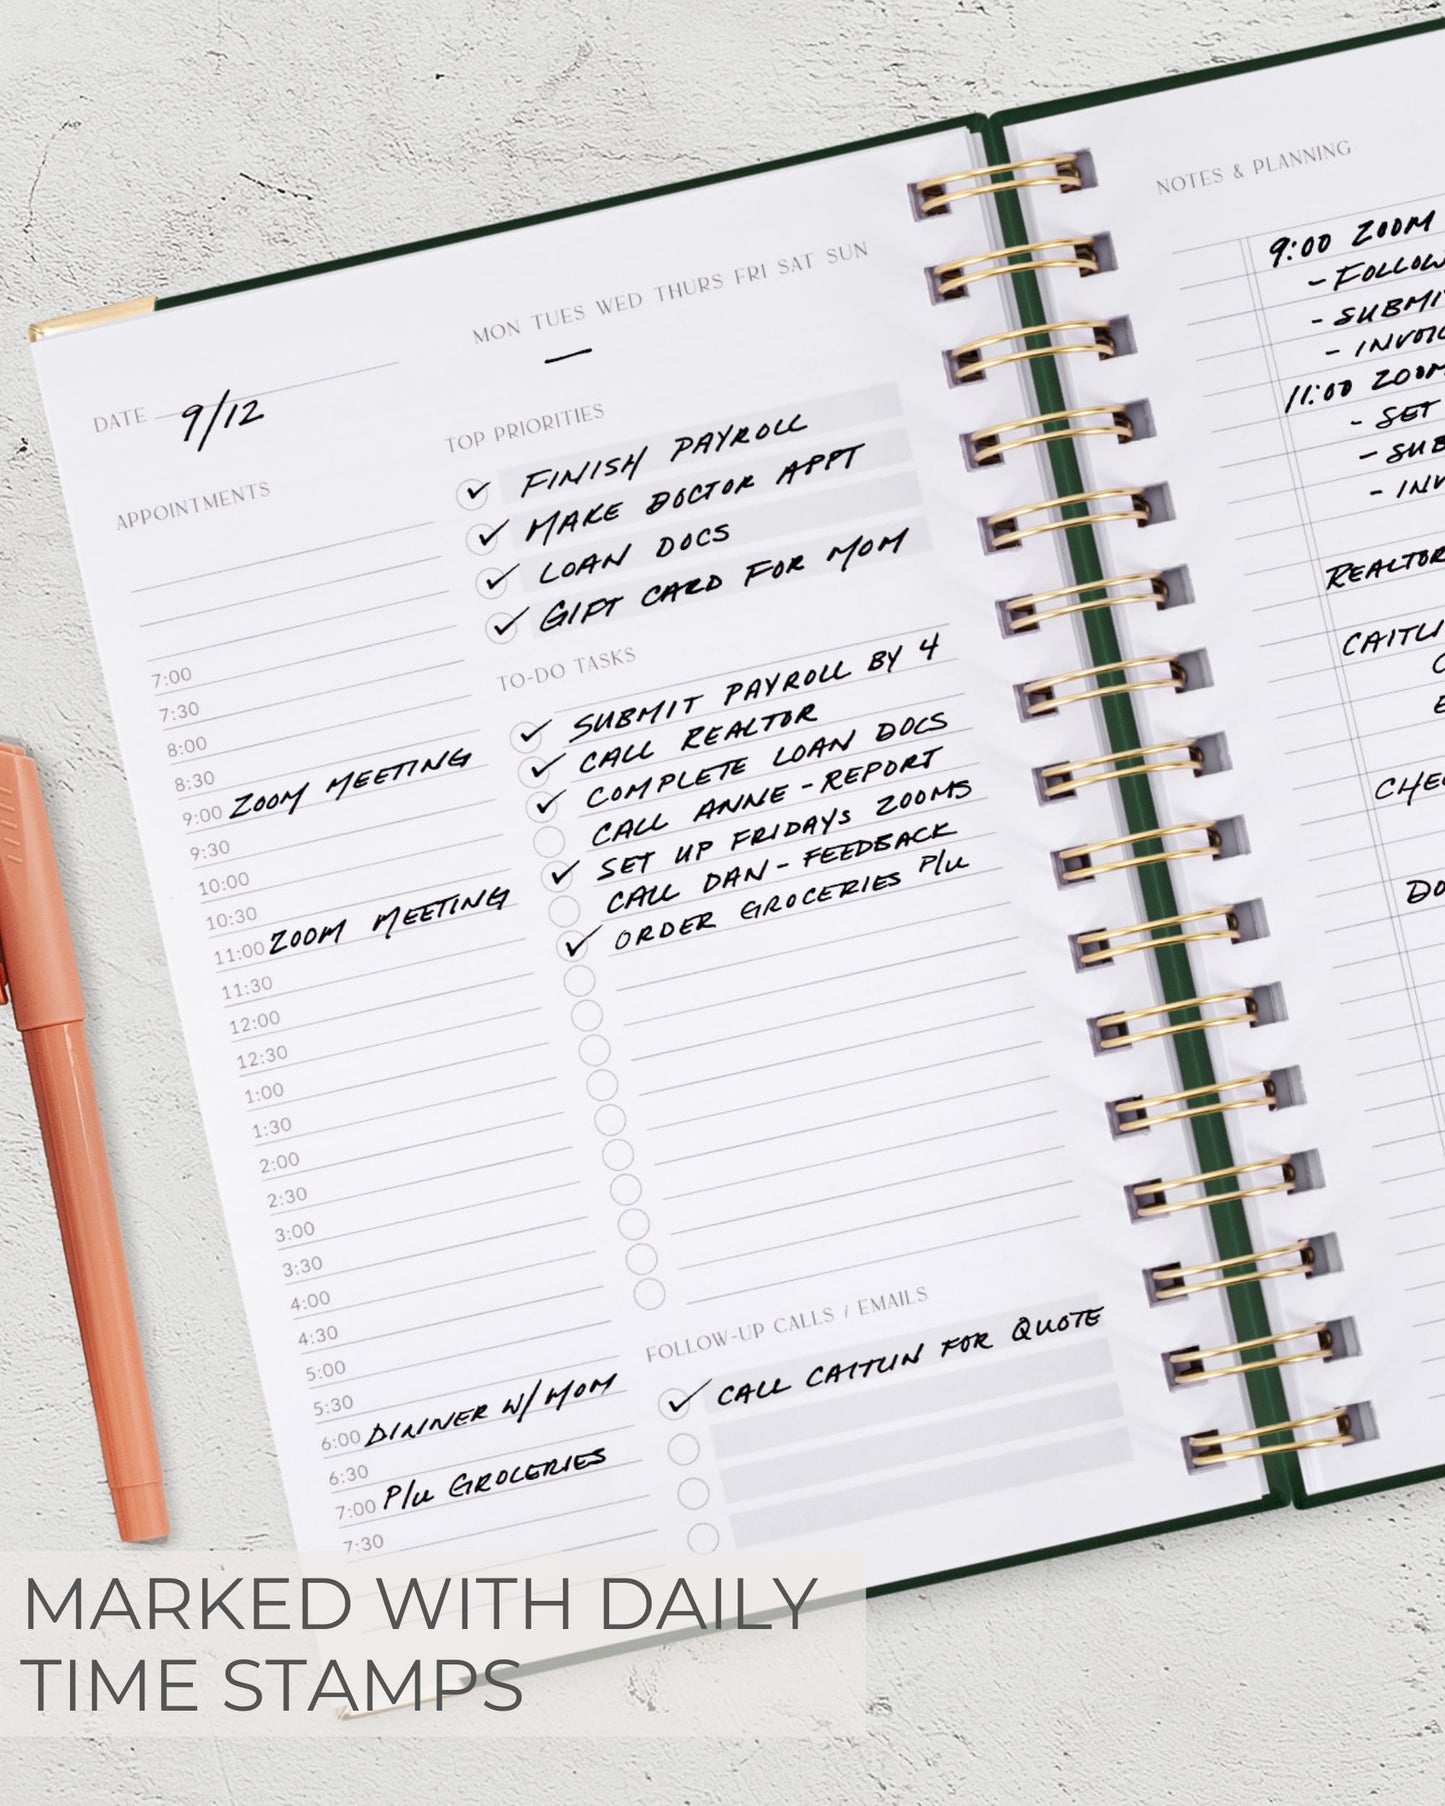 MON TUES WED THURS FRI SAT SUN
DATE 9/12
APPOINTMENTS
7:00
7:30
8:00
8:30
9:00 ZOOM MEETING
9:30
10:00
10:30
11:00 ZOOM MEETING
11:30
12:00
12:30
1:00
1:30
2:00
2:30
3:00
3:30
4:00
4:30
5:00
5:30
6:00 DINNER W/ MOM
6:30
7:00 P/U GROCERIES
7:30
TOP PRIORITIES
FINISH PAYROLL
MAKE DOCTOR APPT
LOAN DOCS
GIFT CARD FOR MOM
TO-DO TASKS
SUBMIT PAYROLL BY 4
CALL REALTOR
COMPLETE LOAN DOCS
CALL ANNE - REPORT
SET UP FRIDAYS ZOOMS
CALL DAN - FEEDBACK
ORDER GROCERIES P/U
FOLLOW-UP CALLS / EMAILS
CALL CAITLIN FOR QUOTE
NOTES & PLANNING
9:00 ZOOM
- FOLLOW
- SUBMI
- INVOIC
11:00 ZOOM
- SET
- SUB
- INV
REALTOR
CAITLI
CHE
DO
MARKED WITH DAILY
TIME STAMPS